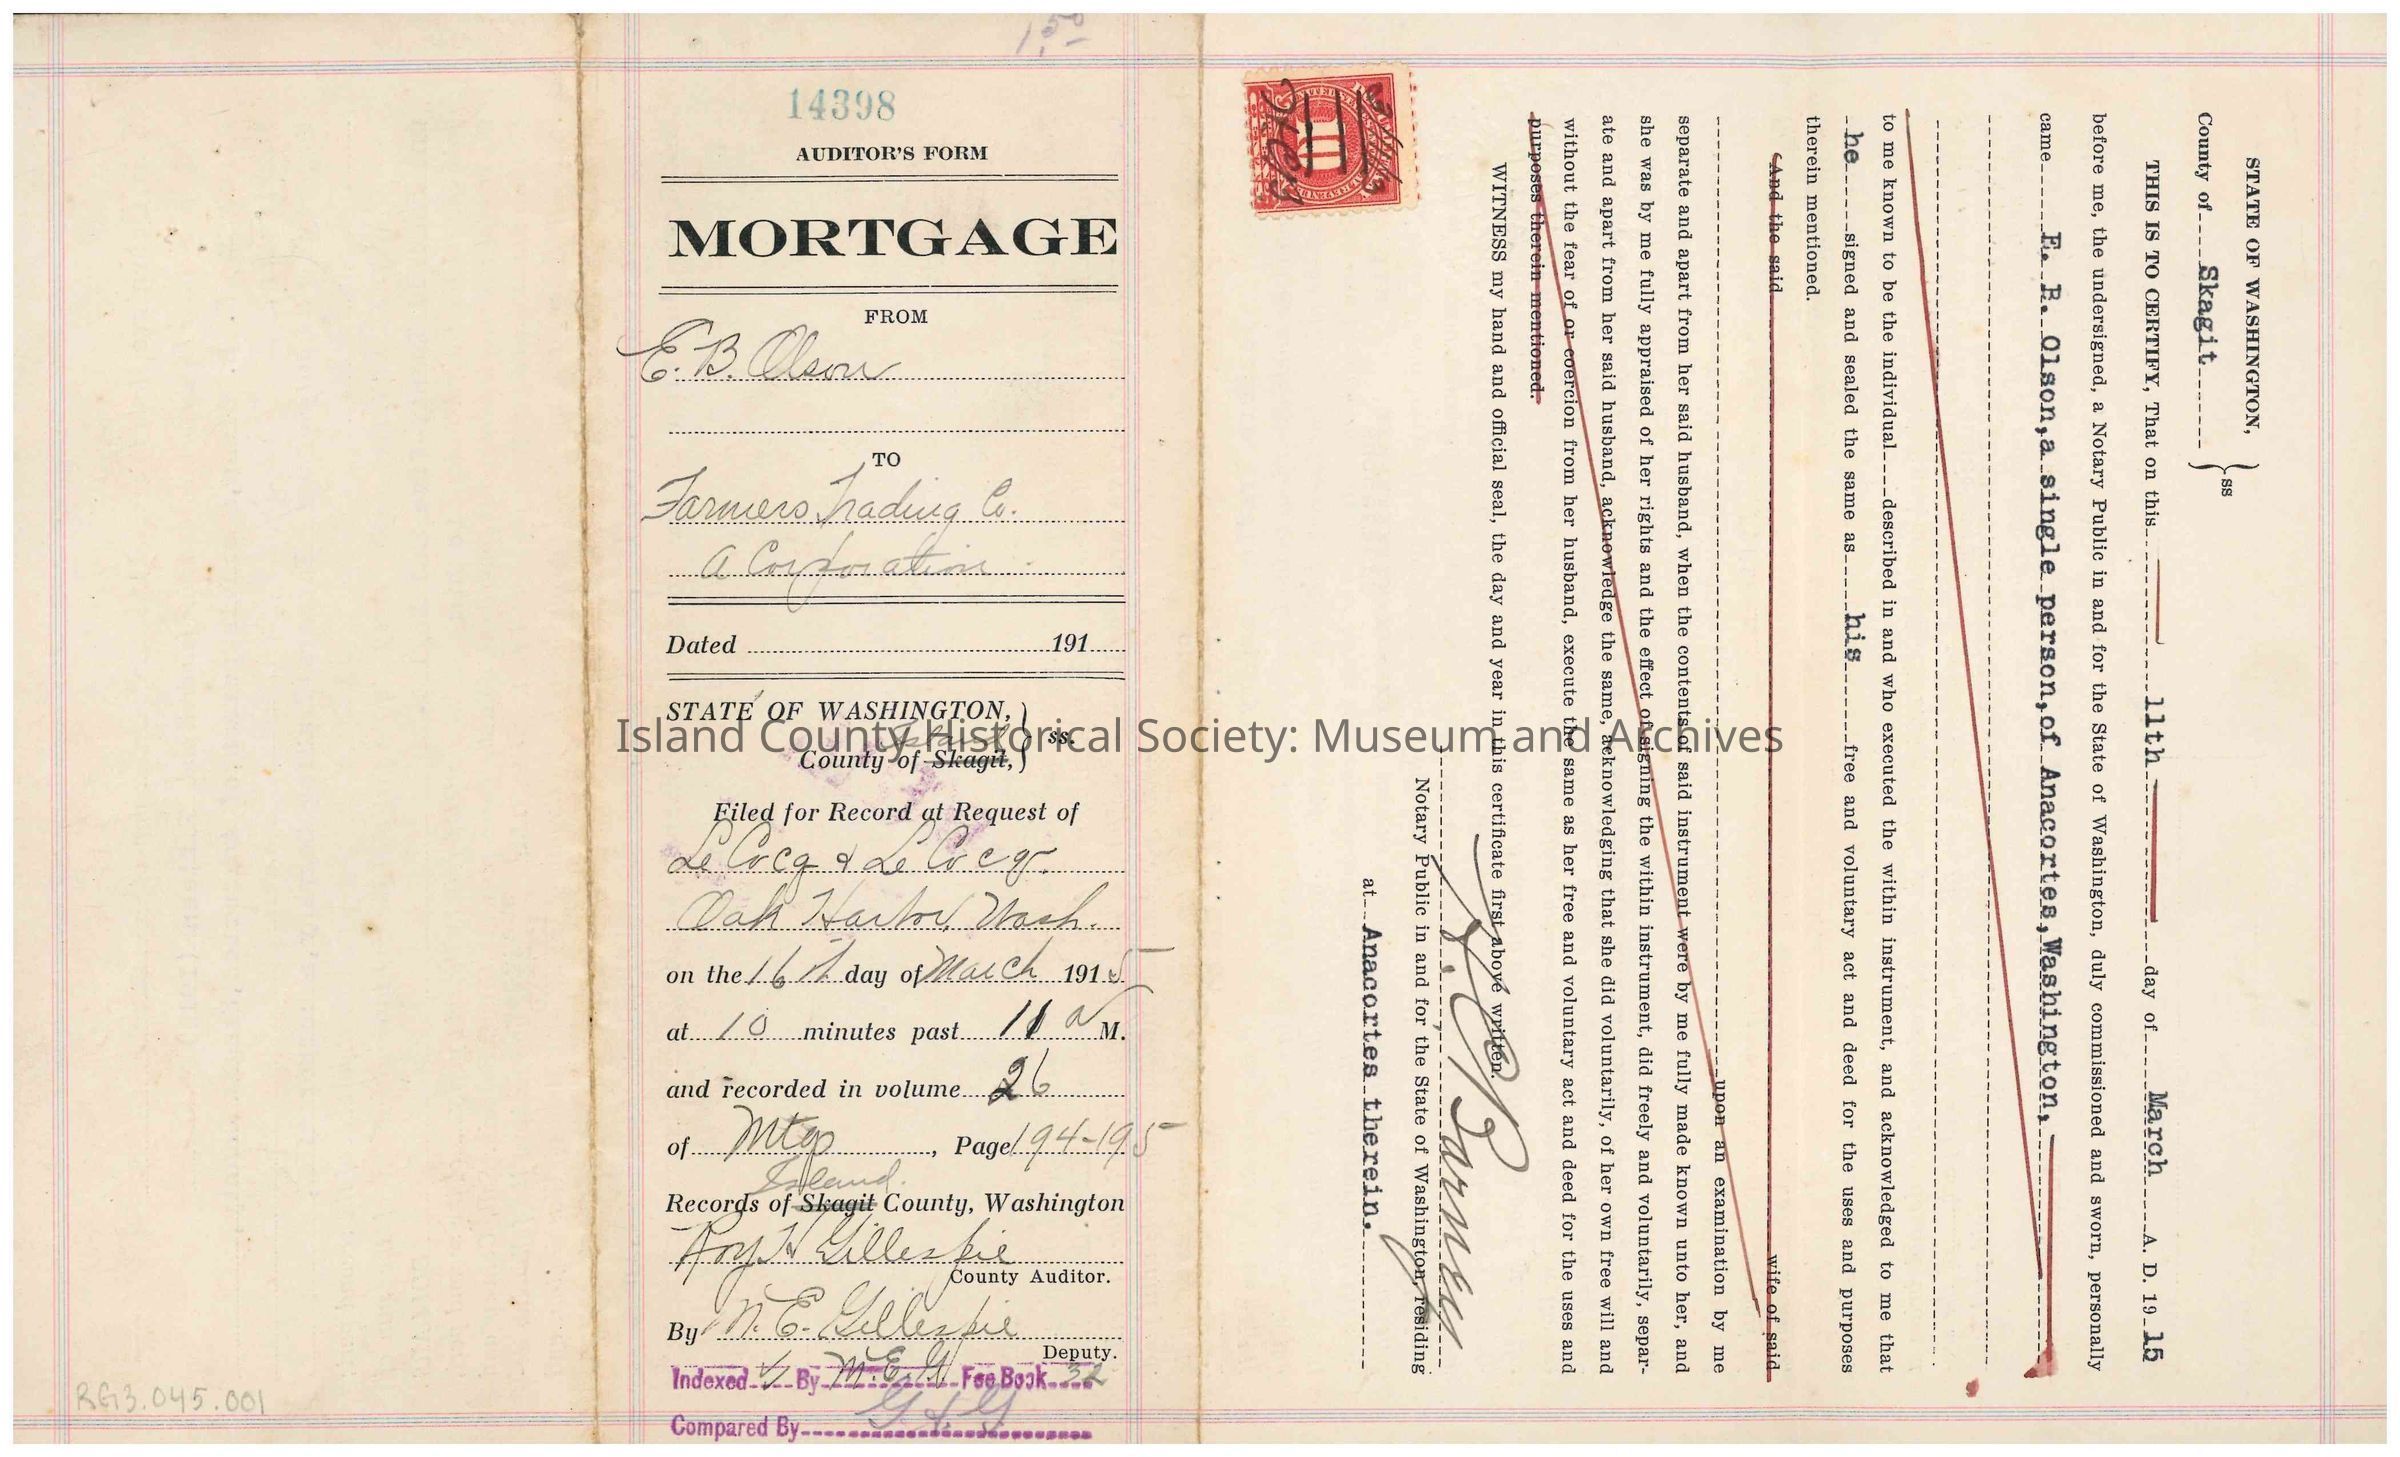 1.50
14398
AUDITOR'S FORM
MORTGAGE
FROM
E. B. Olson
TO
Farmers Trading Co.
a Corporation
Dated 191
STATE OF WASHINGTON, } ss.
Island
County of Skagit,
Filed for Record at Request of
Le Cocq & Le Cocq.
Oak Harbor, Wash.
on the 16th day of March 1915
at 10 minutes past 11 a M.
and recorded in volume 26
of Mtgs, Page 194-195
Island
Records of Skagit County, Washington
Roy H Gillespie
County Auditor.
By M. E. Gillespie
Deputy.
Indexed By M.E.G Fee Book 32
Compared By G & G
RG13.045.001
STATE OF WASHINGTON,
County of Skagit } ss
THIS IS TO CERTIFY, That on this 11th day of March A. D. 19 15
before me, the undersigned, a Notary Public in and for the State of Washington, duly commissioned and sworn, personally
came E. B. Olson, a single person, of Anacortes, Washington,
to me known to be the individual described in and who executed the within instrument, and acknowledged to me that
he signed and sealed the same as his free and voluntary act and deed for the uses and purposes
therein mentioned.
(And the said wife of said
upon an examination by me
separate and apart from her said husband, when the contents of said instrument were by me fully made known unto her, and
she was by me fully appraised of her rights and the effect of signing the within instrument, did freely and voluntarily, separ-
ate and apart from her said husband, acknowledge the same, acknowledging that she did voluntarily, of her own free will and
without the fear of or coercion from her husband, execute the same as her free and voluntary act and deed for the uses and
purposes therein mentioned.
WITNESS my hand and official seal, the day and year in this certificate first above written.
Barney
Notary Public in and for the State of Washington, residing
at Anacortes therein.
10
Island County Historical Society: Museum and Archives